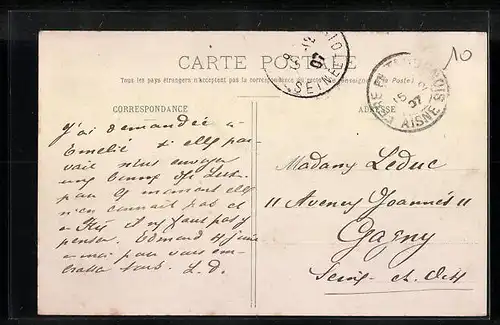 CARTE POSTALE
Tous les pays étrangers n'acceptent pas la correspondance au recto (se renseigner à la Poste)
10
CORRESPONDANCE
ADRESSE
FÈRE EN TARDENOIS
AISNE
07
SEINE ET OI
07
J'ai demandée à
Emelié si elle pou-
vait nous envoyer
une bonne
pas maman elle
n'en connait pas et
il ny faut pas y
penser. Edmond
moi pour vous em-
brasser tous. L.D.
Madame Leduc
11 Avenue Joannès 11
Gagny
Seine et Oise